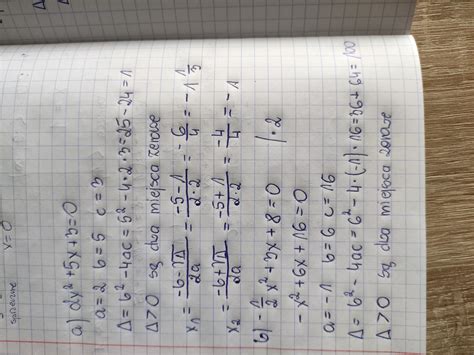 x=0
a) 2x²+5x+3=0
a=2 b=5 c=3
Δ=b²-4ac=5²-4·2·3=25-24=1
Δ>0 są dwa miejsca zerowe
x₁=(-b-√Δ)/2a=(-5-1)/(2·2)=-6/4=-1 1/3
x₂=(-b+√Δ)/2a=(-5+1)/(2·2)=-4/4=-1
b) -1/2x²+3x+8=0 |·2
-x²+6x+16=0
a=-1 b=6 c=16
Δ=b²-4ac=6²-4·(-1)·16=36+64=100
Δ>0 są dwa miejsca zerowe